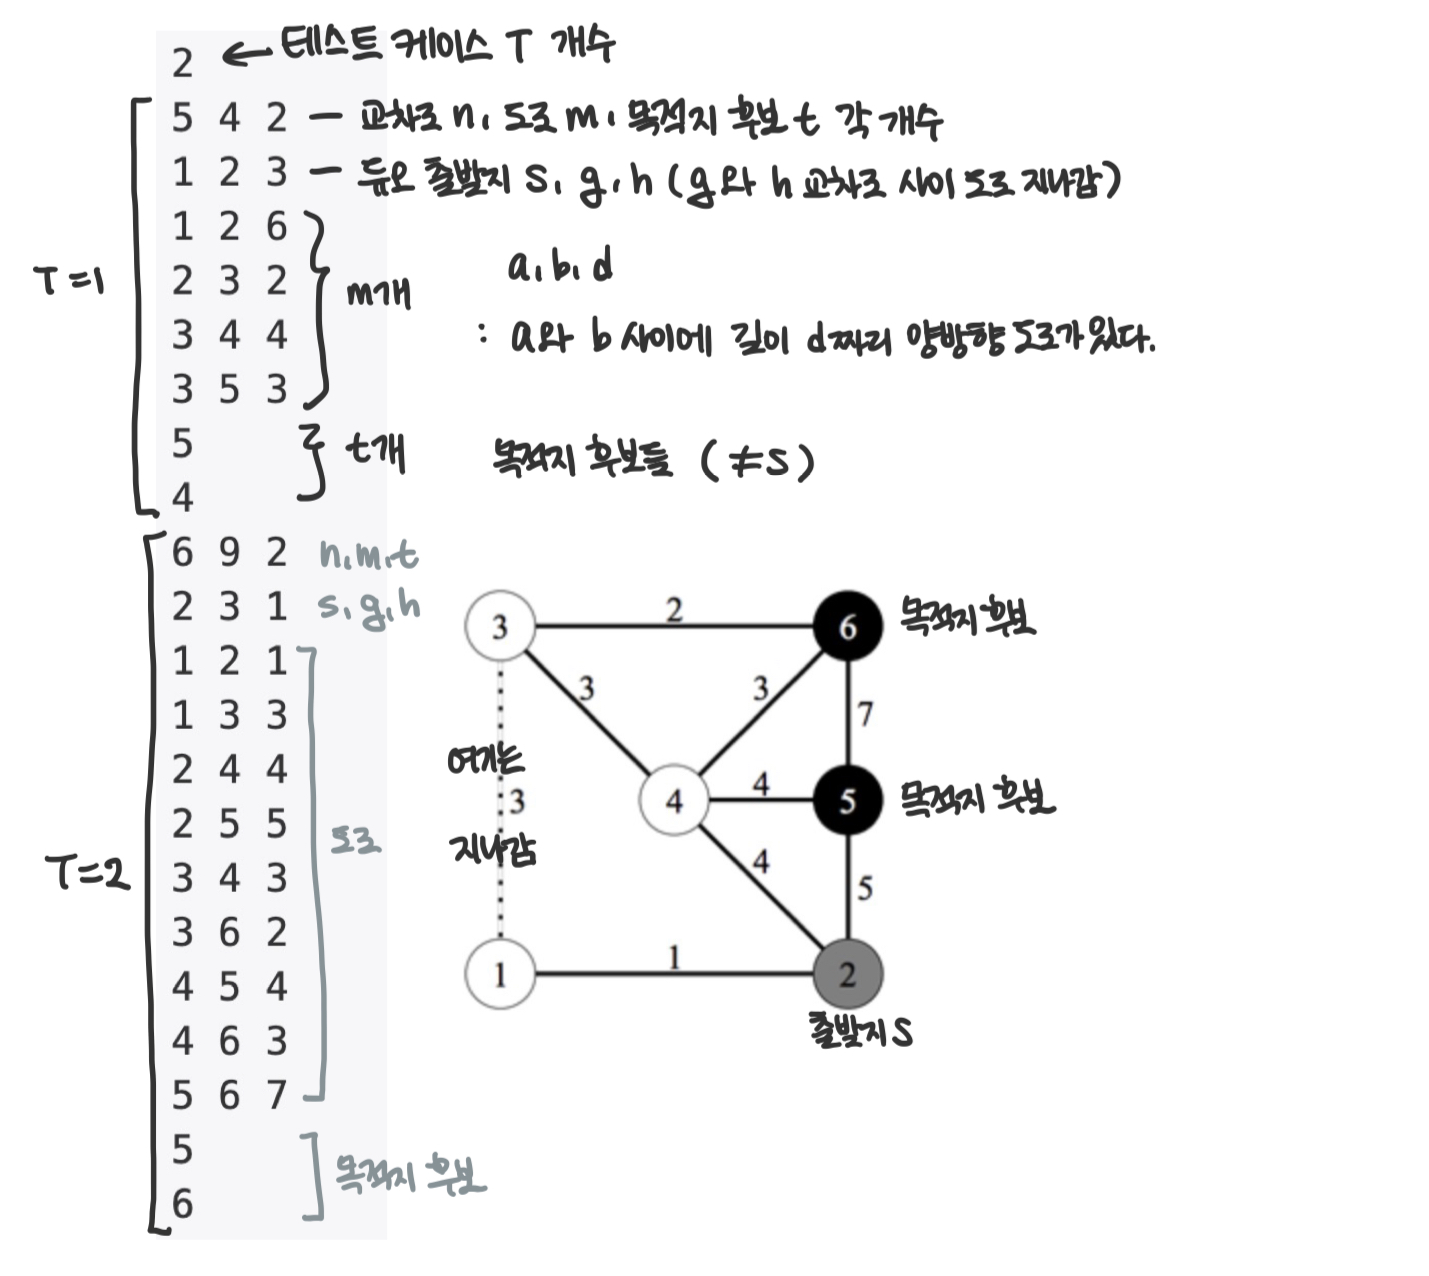 2 ← 테스트 케이스 T 개수
5 4 2 — 교차로 n, 도로 m, 목적지 후보 t 각 개수
1 2 3 — 듀오 출발지 s, g, h (g와 h 교차로 사이 도로 지나감)
1 2 6
2 3 2
3 4 4
3 5 3
m개
a, b, d
: a와 b 사이에 길이 d짜리 양방향 도로가 있다.
T=1
5
4
t개
목적지 후보들 (≠s)
6 9 2 n,m,t
2 3 1 s,g,h
1 2 1
1 3 3
2 4 4
2 5 5
3 4 3
3 6 2
4 5 4
4 6 3
5 6 7
도로
T=2
5
6
목적지 후보
3
2
6
목적지 후보
3
3
7
여기는
3
지나감
4
4
5
목적지 후보
4
5
1
1
2
출발지 S